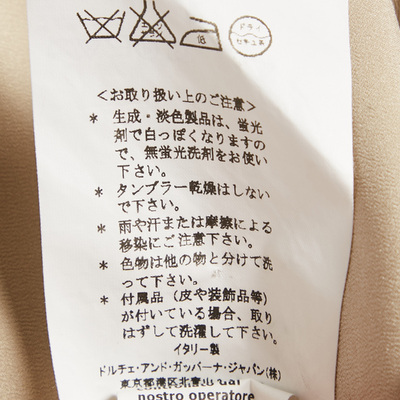 低
ドライ
セキユ系
＜お取り扱い上のご注意＞
* 生成・淡色製品は、蛍光
剤で白っぽくなりますの
で、無蛍光洗剤をお使い
下さい。
* タンブラー乾燥はしない
で下さい。
* 雨や汗または摩擦による
移染にご注意下さい。
* 色物は他の物と分けて洗
って下さい。
* 付属品（皮や装飾品等）
が付いている場合、取り
はずして洗濯して下さい。
イタリー製
ドルチェ・アンド・ガッバーナ・ジャパン(株)
東京都港区北青山
nostro operatore